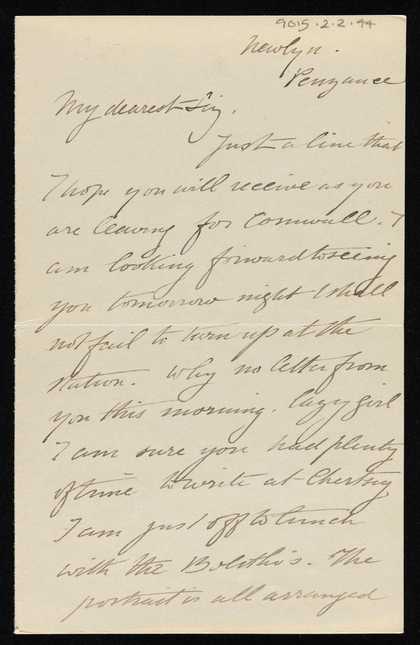 9015.2.2.44
Newlyn.
Penzance
My dearest
Just a line that
I hope you will receive as you
are leaving for Cornwall. I
am looking forward to seeing
you tomorrow night I shall
not fail to turn up at the
station. Why no letter from
you this morning. lazy girl
I am sure you had plenty
of time to write at Chertsey
I am just off to lunch
with the Bolitho's. The
portrait is all arranged